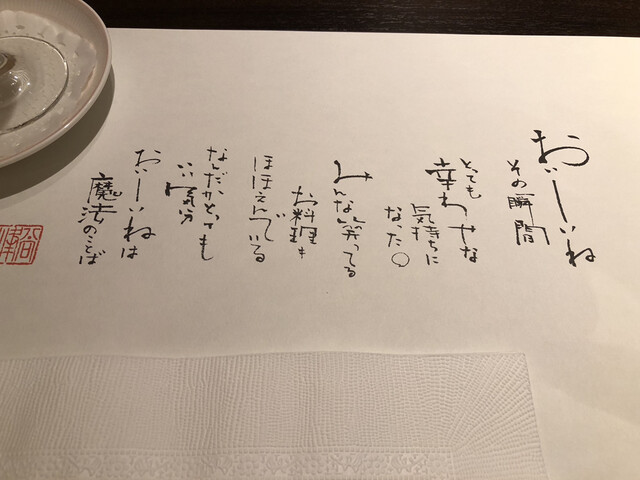 おいーいね
その瞬間
とても
幸わせな
気持ちに
なった○
みんな笑ってる
お料理も
ほほえんでいる
なんだかとっても
いい気分
おいーいねは
魔法のことば